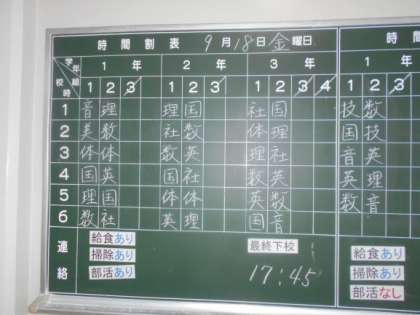 時間割表 9月18日金曜日 時間
学年 組 校時 1年 2年 3年 1年
1 2 3 1 2 3 1 2 3 4 1 2 3
1 音 理 理 国 社 国 技 数
2 美 数 社 数 体 理 国 技
3 体 体 数 英 理 社 音 英
4 国 英 国 社 数 英 英 理
5 理 国 体 体 英 数 数 音
6 数 社 英 理 国 音
連絡
給食あり 最終下校 給食あり
掃除あり 17:45 掃除あり
部活あり 部活なし